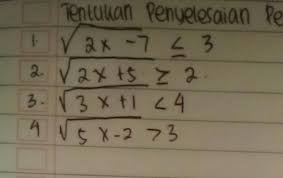 Tentukan Penyelesaian Pe
1. √2x - 7 ≤ 3
2. √2x + 5 ≥ 2.
3. √3x + 1 < 4
4 √5x - 2 > 3